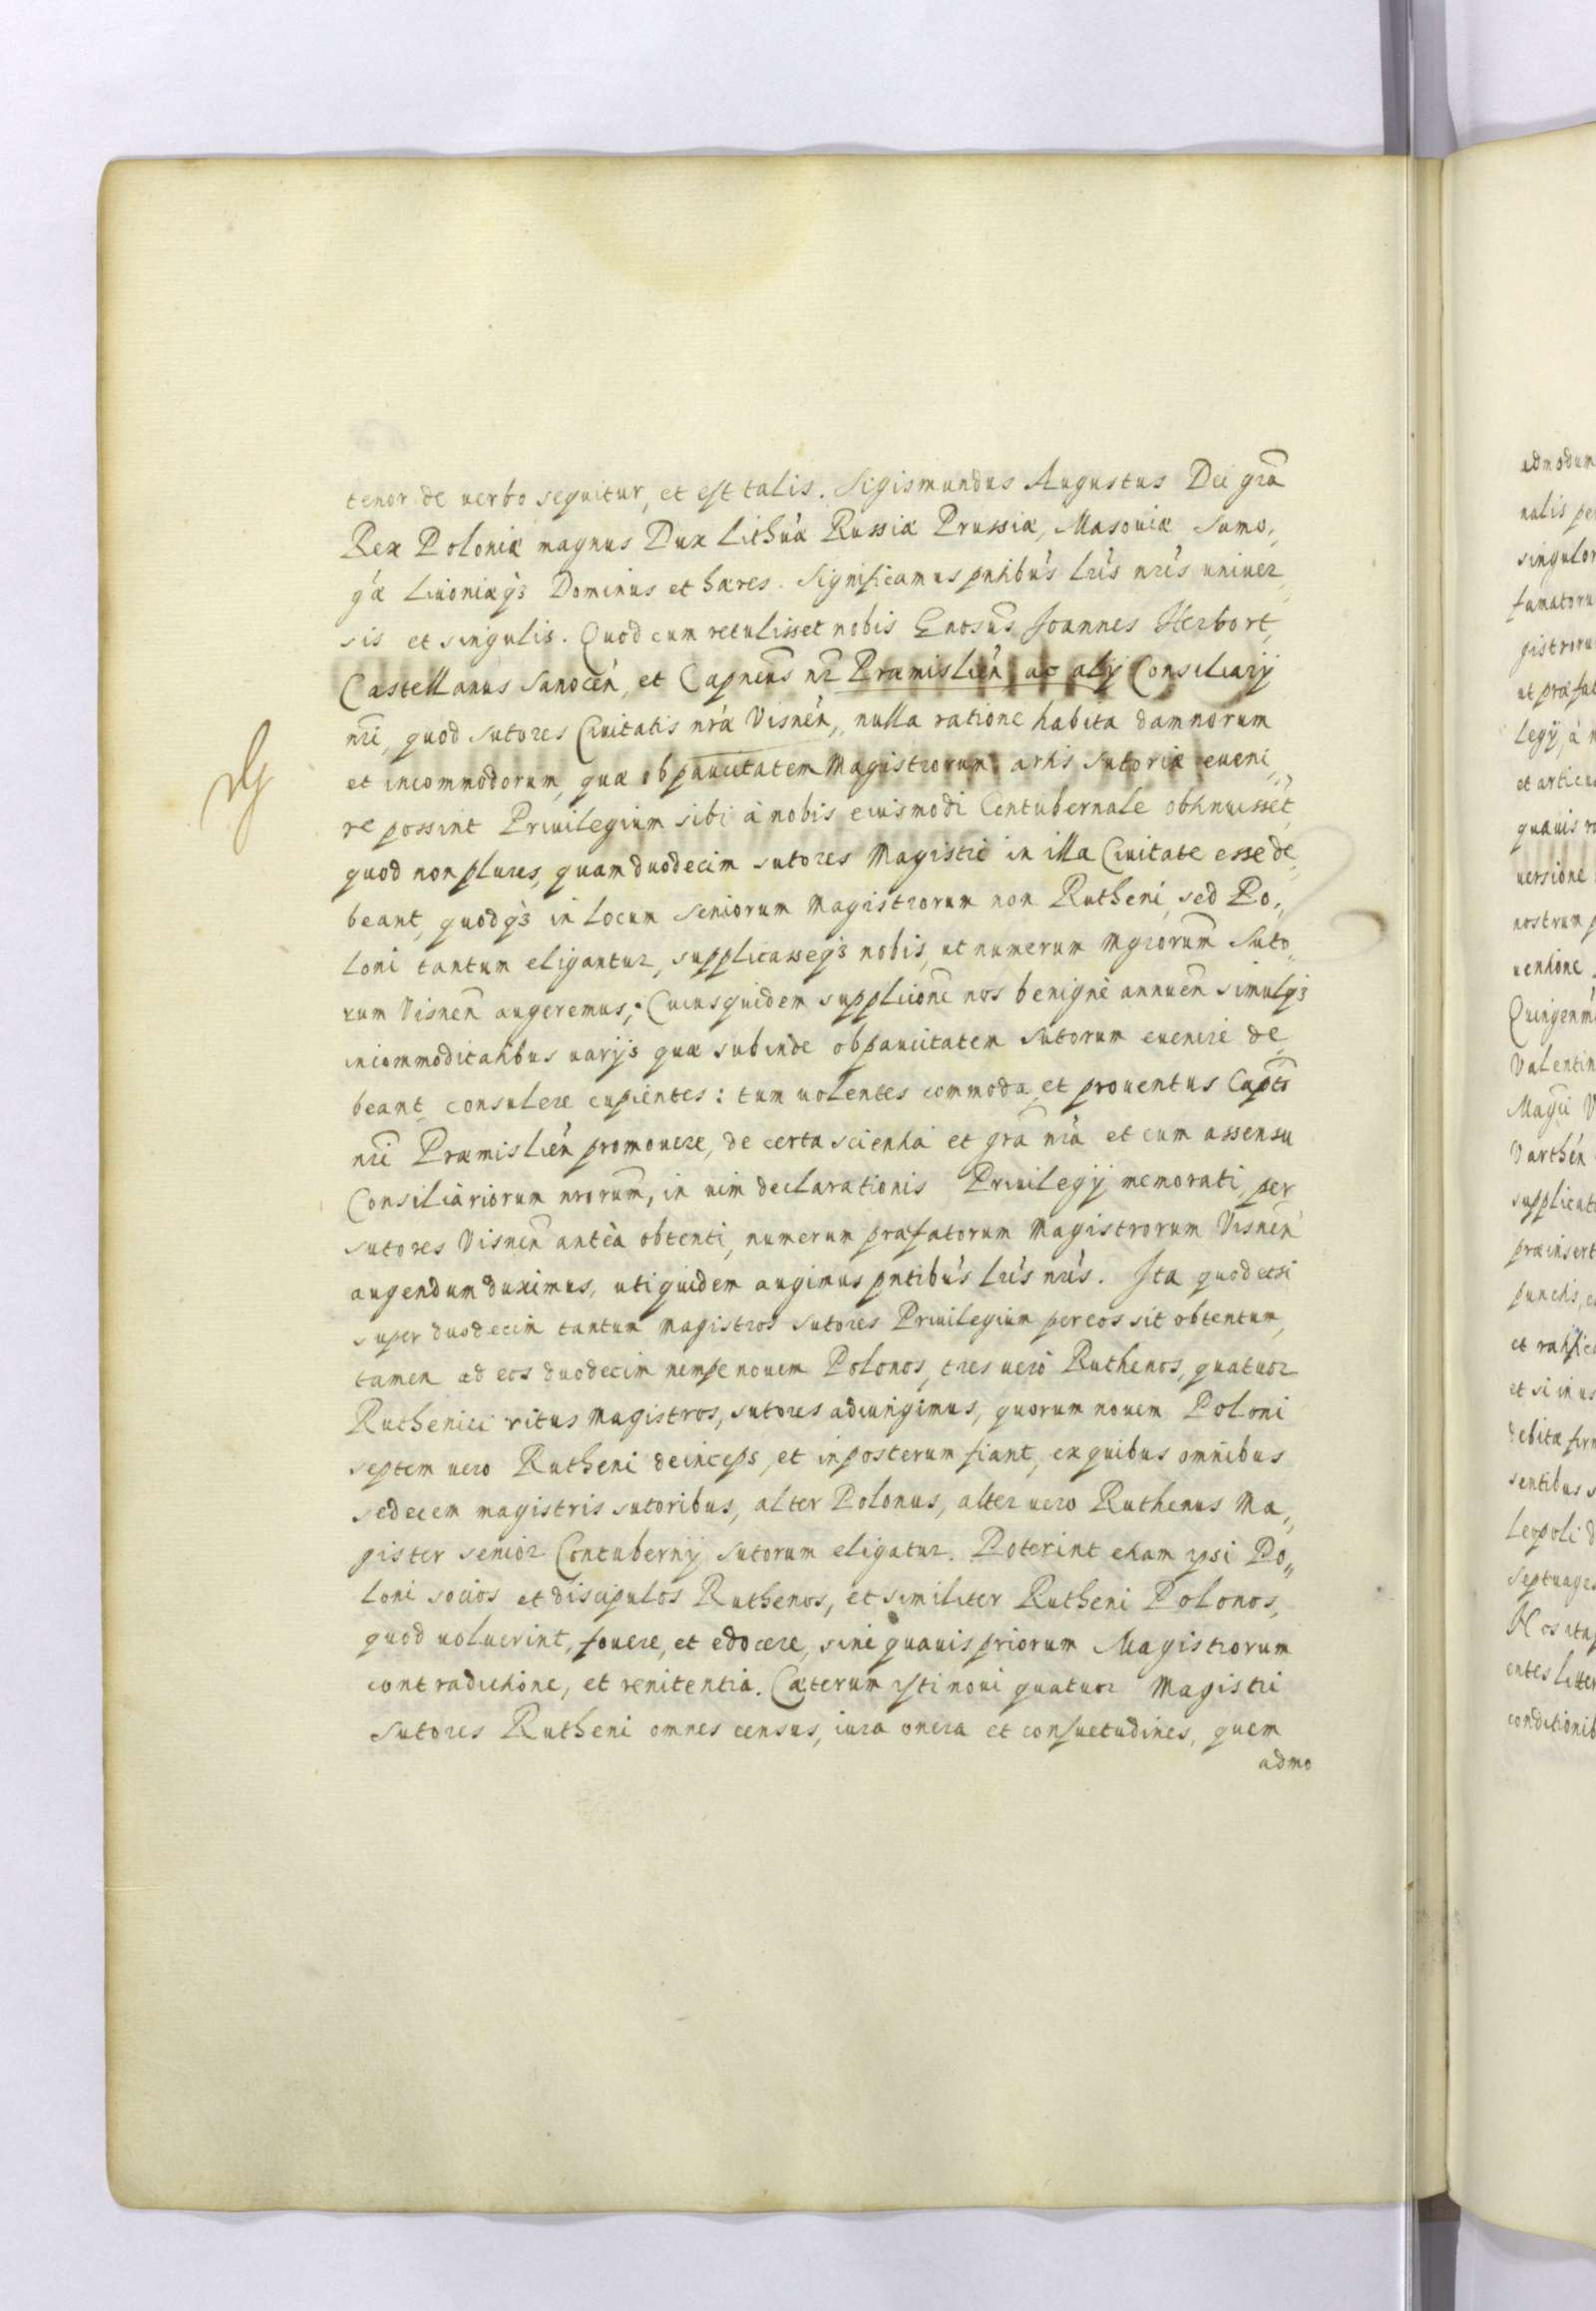 tenor de uerbo sequitur, et est talis. Sigismundus Augustus Dei grã
Rex Poloniæ magnus Dux Lithuǽ Russiæ Prussiæ, Masouiæ Samo,,
gǽ Liuoniæqȝ Dominus et hæres. Significamus pntibús lrís nrís uniuer,,
sis et singulis. Quod cum retulisset nobis Gnosus̃ Joannes Herbort,
Castellanus Sanoceń, et Capneus̃ nr̃ Præmislień ac alij Consiliarij
nrĩ, quod sutores Ciuitatis nrǽ Visneń, nulla ratione habita damnorum
et incommodorum, quæ ob paucitatem Magistrorum artis sutoriæ eueni,,
re possint Priuilegium sibi à nobis eiusmodi Contubernale obtinuisset,
quod non plures, quam duodecim sutores Magistri in illa Ciuitate esse de,,
beant, quodqȝ in locum seniorum Magistrorum non Rutheni, sed Po,,
loni tantum eligantur, supplicasseqȝ nobis, ut numerum Mgrorum̃ Suto,,
rum Visneñ augeremus; Cuiusquidem supplicionẽ nos benignè annueñ simulqȝ
incommoditatibus varijs quæ subinde ob paucitatem sutorum euenire de,,
beant consulere cupientes: tum uolentes commoda et prouentus Capti
nrĩ Præmislień promouere, de certa scientia et grã nrã et cum assensu
Consiliariorum nrorum̃, in uim declarationis Priuilegij memorati, per
sutores Visneñ anteà obtenti, numerum præfatorum Magistrorum Visneñ
augendum duximus, uti quidem augimus pntibús lrís nrís. Ita quod etsi
super duodecim tantum Magistros sutores Priuilegium per eos sit obtentum,
tamen ad eos duodecim nempe nouem Polonos, tres uerò Ruthenos, quatuor
Ruthenici ritus Magistros, sutores adiungimus, quorum nouem Poloni
septem uero Rutheni deinceps, et inposterum fiant, ex quibus omnibus
sedecem magistris sutoribus, alter Polonus, alter uero Ruthenus Ma,,
gister senior Contubernij sutorum eligatur. Poterint etiam ipsi Po,,
loni socios et discipulos Ruthenos, et similiter Rutheni Polonos,
quod uoluerint, fouere, et edocere, sine quauis priorum Magistrorum
contradictione, et renitentia. Cæterum isti noui quatuor Magistri
sutores Rutheni omnes census, iura onera et consuetudines, quem
admo